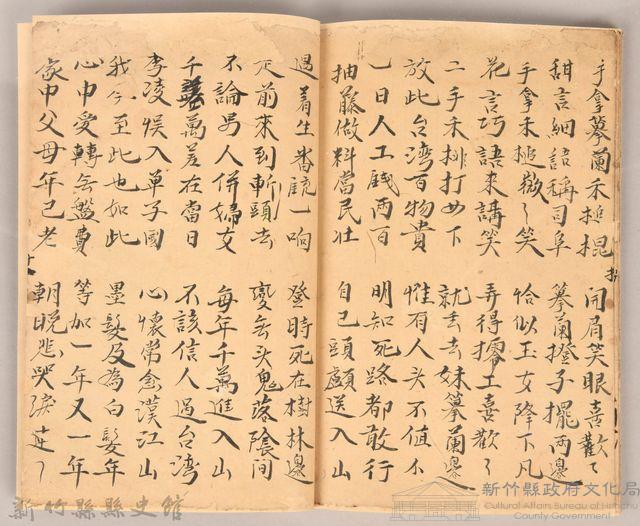 手拿摹蘭禾搥棍 開眉笑眼喜歡〻
甜言細語稱司阜 摹蘭撥子擺兩邊
手拿禾搥微〻笑 恰似玉女降下凡
花言巧語來講笑 弄得工喜歡〻
二手禾排打如下 就丟去妹摹蘭邊
放此台湾百物貴 惟有人头不值
一日人工錢兩百 明知死路都敢行
抽藤做料當民壯 自己頭顱送入山
遇着生番銃一响 登時死在樹林邊
走前來到斬頭去 變無头鬼落陰间
不論男人併婦女 每年千萬進入山
千萬差在當日 不該信人過台湾
李陵悞入單子國 心懷常念漢江山
我今至此也如此 墨髮及為白髮年
心中愛轉無盤費 等加一年又一年
家中父母年已老 朝晚悲哭淚連〻
新竹縣縣史館
新竹縣政府文化局
Cultural Affairs Bureau of Hsinchu
County Government